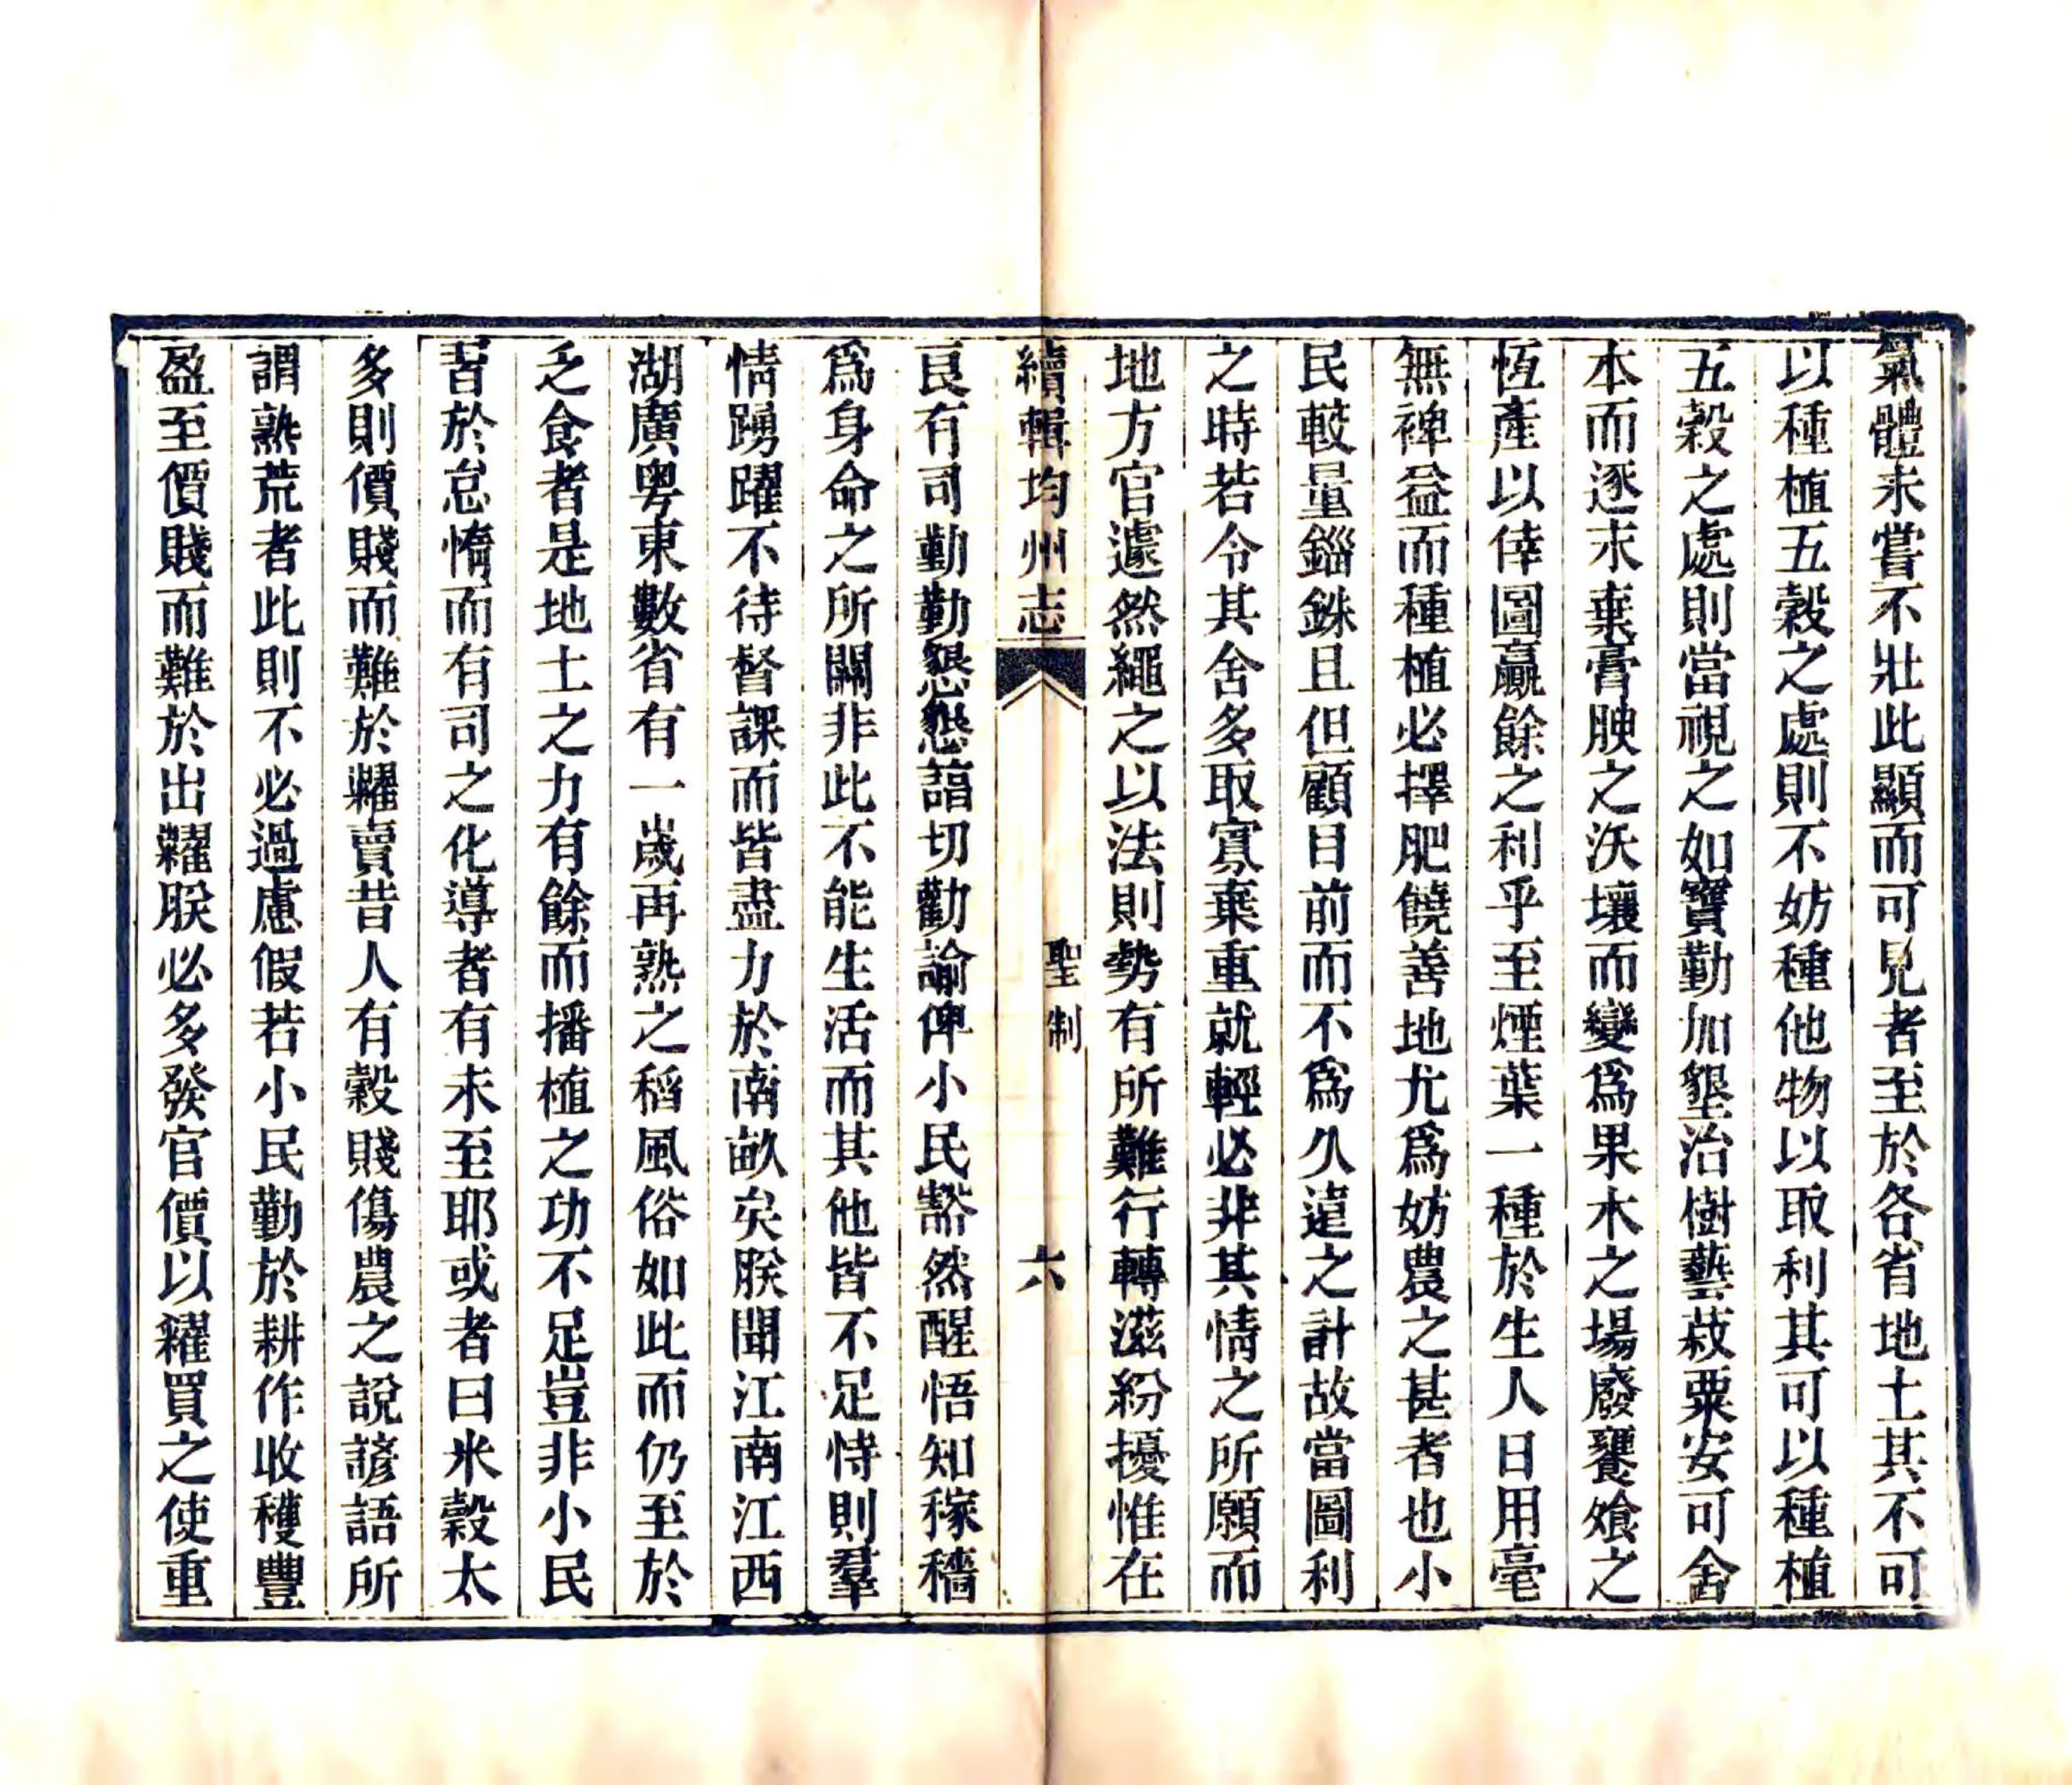 氣體未嘗不壯此顯而可見者至於各省地土其不可
以種植五穀之處則不妨種他物以取利其可以種植
五穀之處則當視之如寶勤加墾治樹藝菽粟安可舍
本而逐末棄膏腴之沃壤而變爲果木之場廢饔飧之
恆產以倖圖贏餘之利乎至煙葉一種於生人日用毫
無裨益而種植必擇肥饒善地尤爲妨農之甚者也小
民較量錙銖且但顧目前而不爲久遠之計故當圖利
之時若令其舍多取寡棄重就輕必非其情之所願而
地方官遽然繩之以法則勢有所難行轉滋紛擾惟在
續輯均州志
聖制
六
良有司勤勤懇懇諳切勸諭俾小民豁然醒悟知稼穡
爲身命之所關非此不能生活而其他皆不足恃則羣
情踴躍不待督課而皆盡力於南畝矣朕聞江南江西
湖廣粤東數省有一歲再熟之稻風俗如此而仍至於
乏食者是地土之力有餘而播植之功不足豈非小民
習於怠惰而有司之化導者有未至耶或者曰米穀太
多則價賤而難於糶賣昔人有穀賤傷農之說諺語所
謂熟荒者此則不必過慮假若小民勤於耕作收穫豐
盈至價賤而難於出糶朕必多發官價以糴買之使重